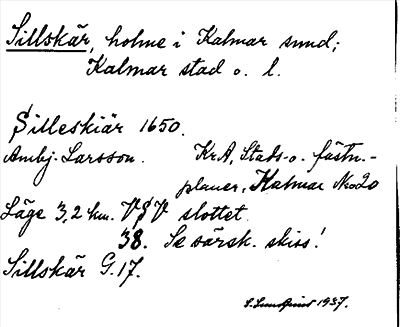 Sillskär, holme i Kalmar sund;
Kalmar stad o. l.
Silleskiär 1650.
Ambj. Larsson. KrA, Stads- o. fästn.-
planer, Kalmar No 20
Läge 3,2 km. VSV slottet
38. Se särsk. skiss!
Sillskär G.17.
1937.